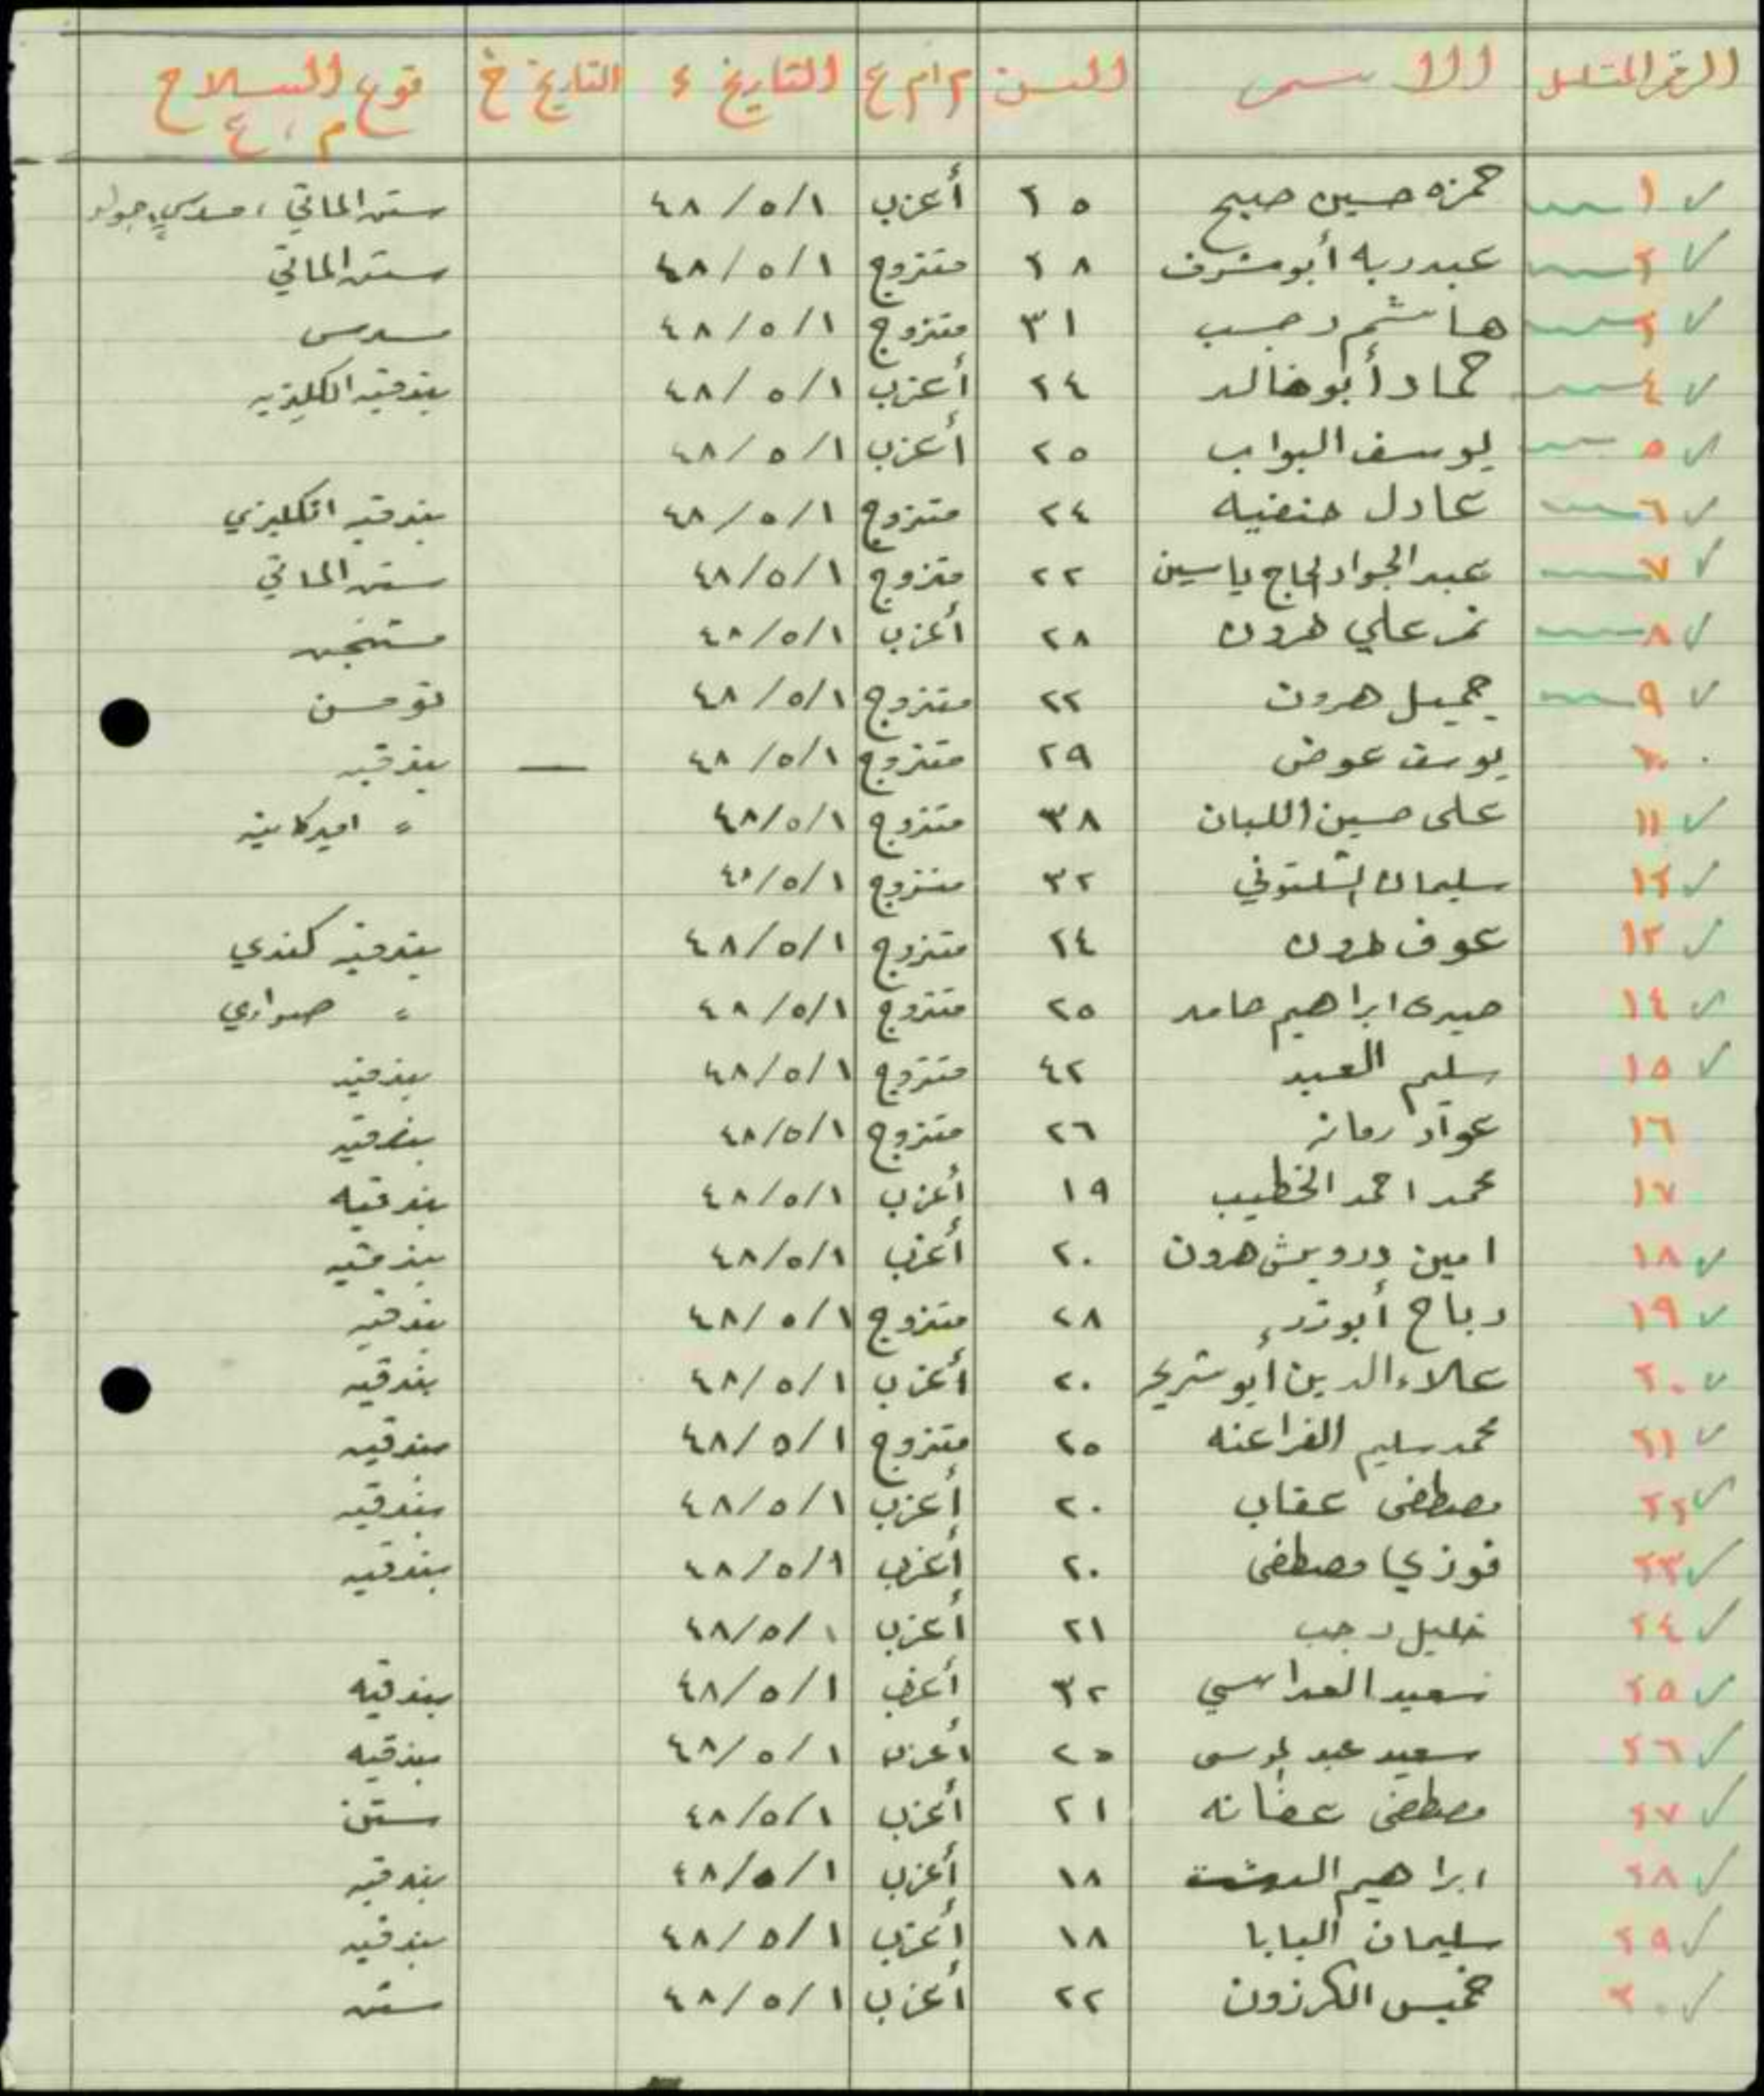 الرقم المتسلسل الاسم السن م ام ع التاريخ ء التاريخ خ نوع السلاح م، ع
١ حمزه حسين صبيح ٢٥ أعزب ٤٨/٥/١ ستن الماني ، مسدس
٢ عبدربه أبو شرف ٢٨ متزوج ٤٨/٥/١ ستن الماني
٣ هاشم رجب ٣١ متزوج ٤٨/٥/١ مسدس
٤ حماد أبو خالد ٢٤ أعزب ٤٨/٥/١ بندقيه انكليزيه
٥ يوسف البواب ٢٥ أعزب ٤٨/٥/١
٦ عادل حنفيه ٢٤ متزوج ٤٨/٥/١ بندقيه انكليزي
٧ عبد الجواد الحاج ياسين ٢٢ متزوج ٤٨/٥/١ ستن الماني
٨ نمر علي هرون ٢٨ أعزب ٤٨/٥/١
٩ جميل هرون ٢٢ متزوج ٤٨/٥/١ تومسن
١٠ يوسف عوض ٢٩ متزوج ٤٨/٥/١ — بندقيه
١١ على حسين اللبان ٣٨ متزوج ٤٨/٥/١ = اميركانيه
١٢ سليمان الشلتوني ٣٢ متزوج ٤٨/٥/١
١٣ عوف هرون ٢٤ متزوج ٤٨/٥/١ بندقيه كندي
١٤ صبرى ابراهيم حامد ٢٥ متزوج ٤٨/٥/١ = هواري
١٥ سليم العبد ٤٢ متزوج ٤٨/٥/١ بندقيه
١٦ عواد رمانه ٢٦ متزوج ٤٨/٥/١ بندقيه
١٧ محمد احمد الخطيب ١٩ أعزب ٤٨/٥/١ بندقيه
١٨ امين درويش هرون ٢٠ أعزب ٤٨/٥/١ بندقيه
١٩ رباح أبو ٢٨ متزوج ٤٨/٥/١ بندقيه
٢٠ علاء الدين أبو شريخ ٢٠ أعزب ٤٨/٥/١ بندقيه
٢١ محمد سليم الفراعنه ٢٥ متزوج ٤٨/٥/١ بندقيه
٢٢ مصطفى عقاب ٢٠ أعزب ٤٨/٥/١ بندقيه
٢٣ فوزي مصطفى ٢٠ أعزب ٤٨/٥/١ بندقيه
٢٤ خليل رجب ٢١ أعزب ٤٨/٥/١
٢٥ سعيد العداسي ٣٢ أعزب ٤٨/٥/١ بندقيه
٢٦ سعيد عبد موسى ٢٥ اعزب ٤٨/٥/١ بندقيه
٢٧ مصطفى عفانه ٢١ أعزب ٤٨/٥/١ ستن
٢٨ ابراهيم ١٨ أعزب ٤٨/٥/١ بندقيه
٢٩ سليمان البابا ١٨ أعزب ٤٨/٥/١ بندقيه
٣٠ خميس الكرزون ٢٢ أعزب ٤٨/٥/١ ستن